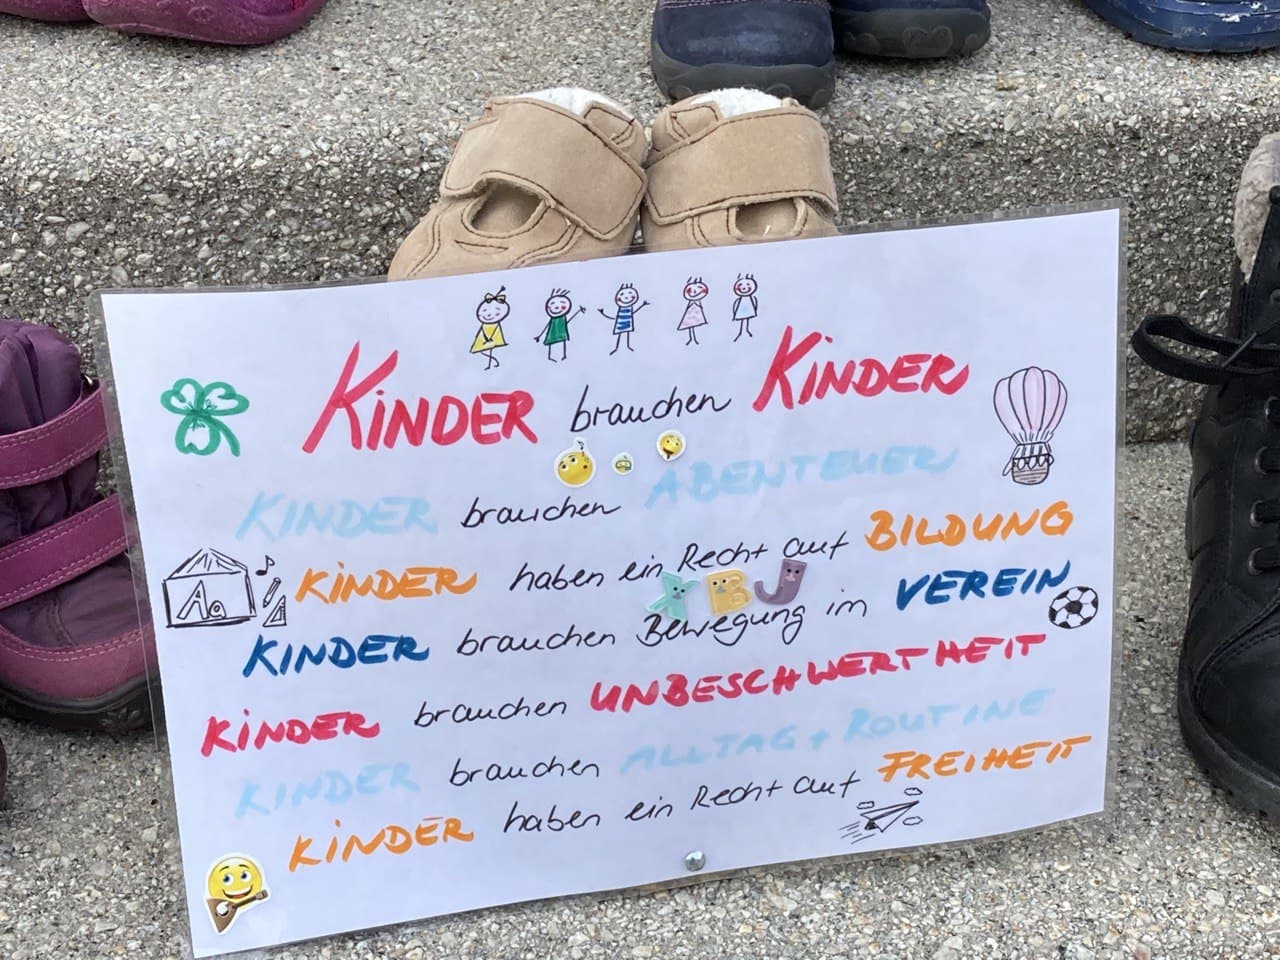 KINDER brauchen KINDER
KINDER brauchen ABENTEUER
KINDER haben ein Recht auf BILDUNG
X B J
KINDER brauchen Bewegung im VEREIN
Aa
KINDER brauchen UNBESCHWERTHEIT
KINDER brauchen ALLTAG + ROUTINE
KINDER haben ein Recht auf FREIHEIT